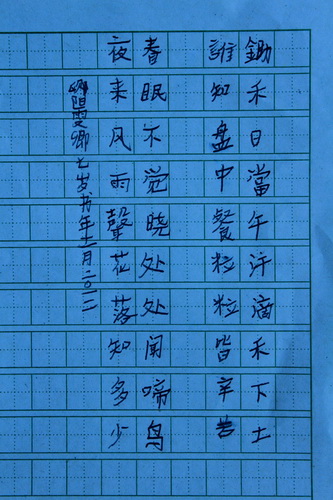 鋤禾日當午汗滴禾下土
誰知盘中餐粒粒皆辛苦
春眠不觉晓处处闻啼鸟
夜来风雨聲花落知多少
阳雯卿七岁书年十一月二〇一